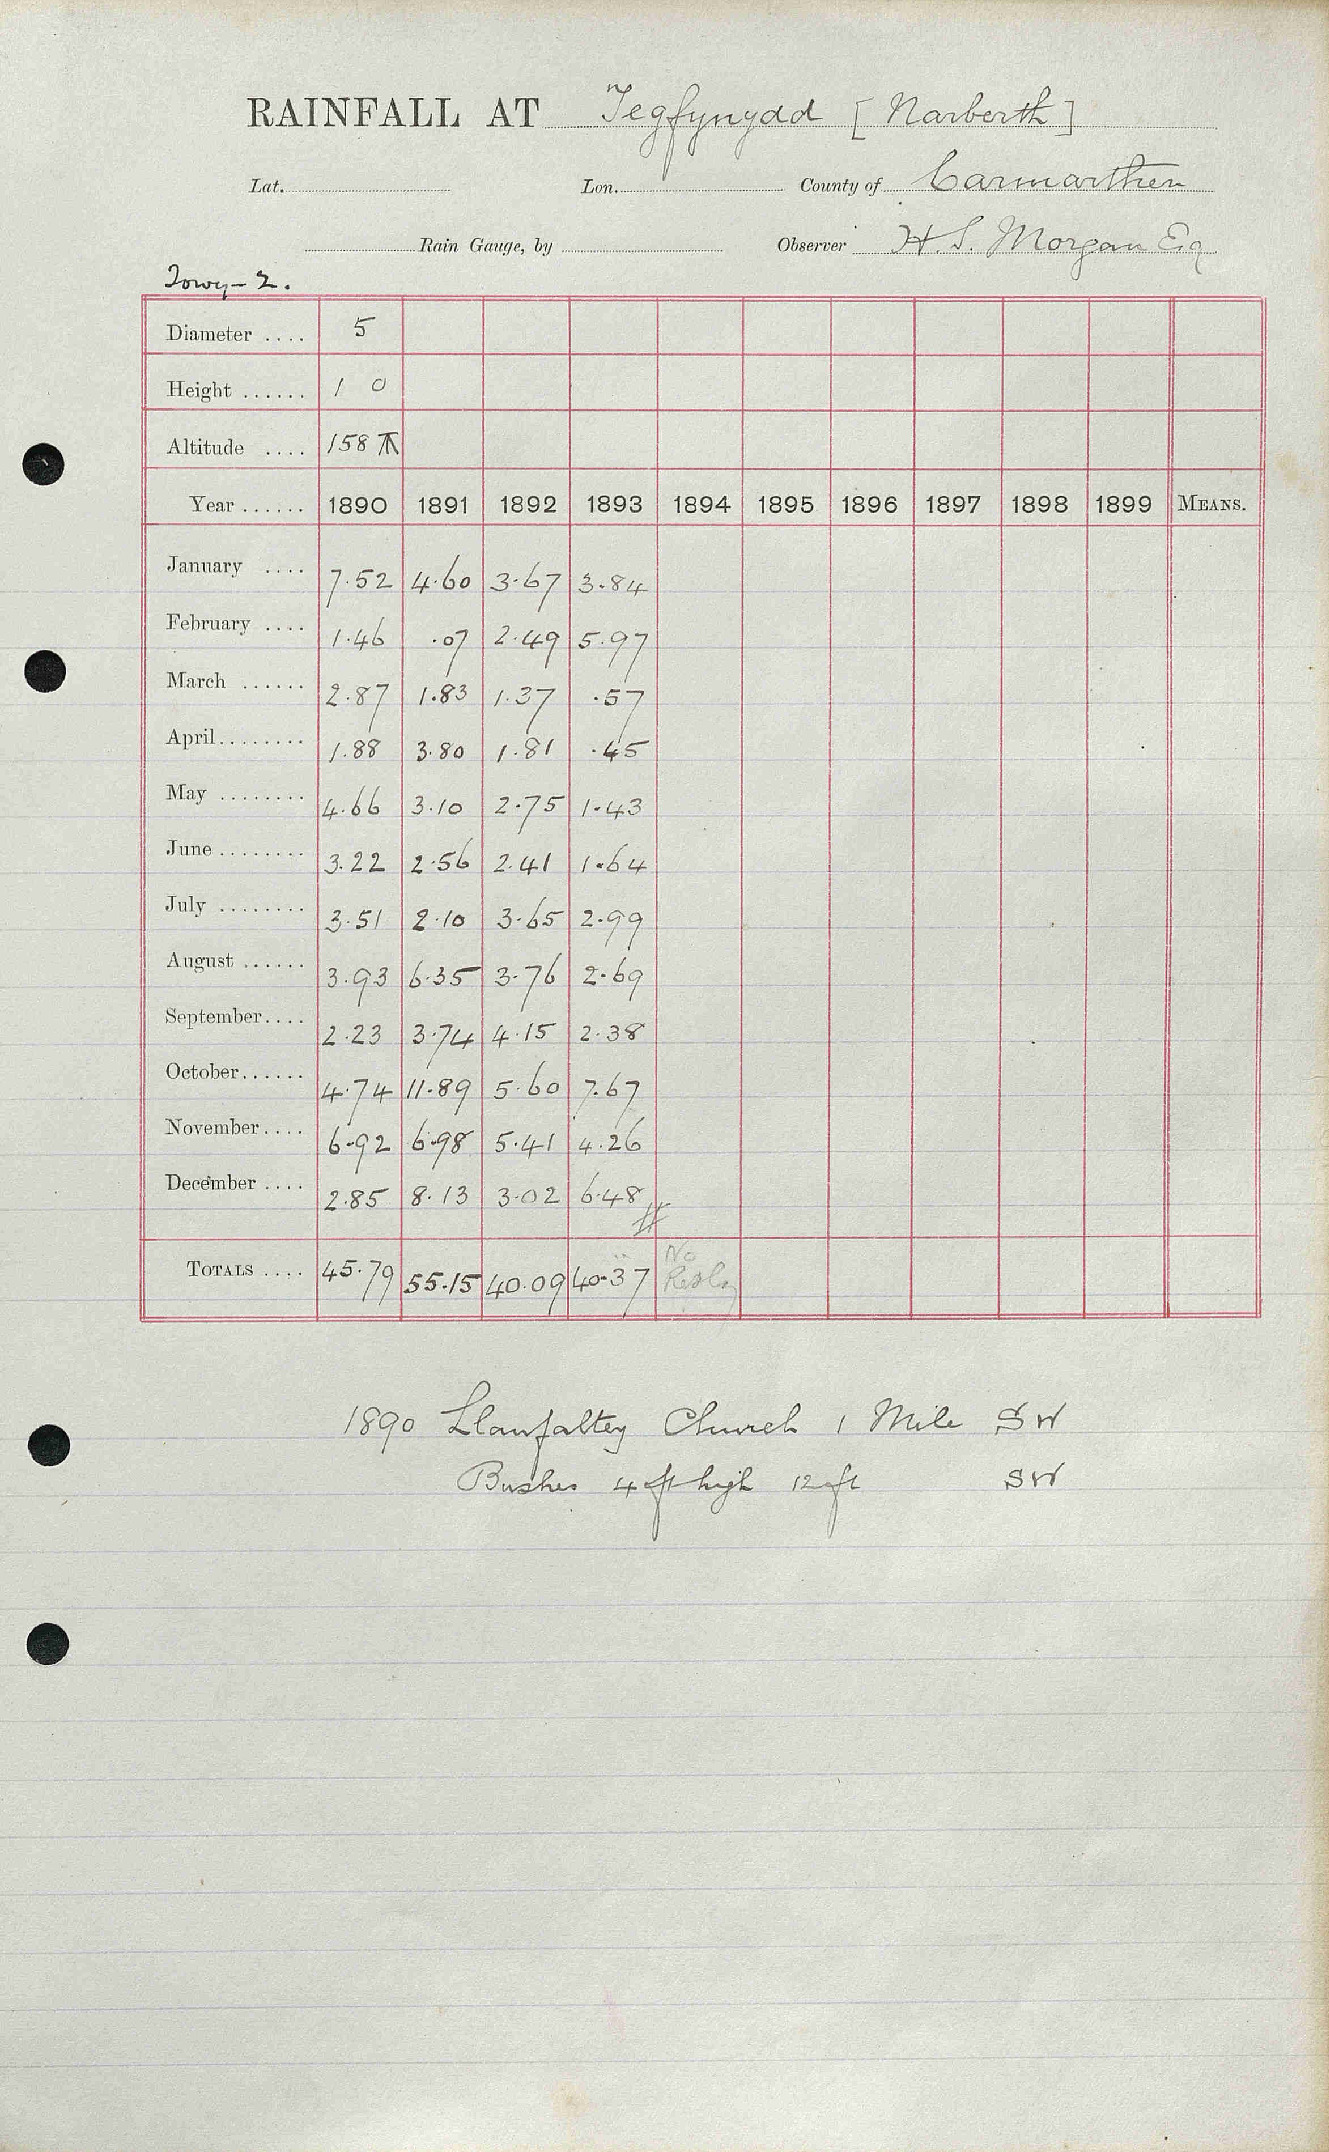 RAINFALL AT Tegfynydd [Narberth]
Lat. Lon. County of Carmarthen
Rain Gauge, by Observer H. S. Morgan Esq
Towy-2.
Diameter .... 5
Height ...... 1 0
Altitude .... 158
Year ...... 1890 1891 1892 1893 1894 1895 1896 1897 1898 1899 MEANS.
January .... 7.52 4.60 3.67 3.84
February .... 1.46 .07 2.49 5.97
March ...... 2.87 1.83 1.37 .57
April........ 1.88 3.80 1.81 .45
May ........ 4.66 3.10 2.75 1.43
June ........ 3.22 2.56 2.41 1.64
July ........ 3.51 2.10 3.65 2.99
August ...... 3.93 6.35 3.76 2.69
September.... 2.23 3.74 4.15 2.38
October...... 4.74 11.89 5.60 7.67
November.... 6.92 6.98 5.41 4.26
December .... 2.85 8.13 3.02 6.48
TOTALS .... 45.79 55.15 40.09 40.37 No
1890 Llanfaltey Church 1 Mile SW
Bushes 4 ft high 12 ft SW